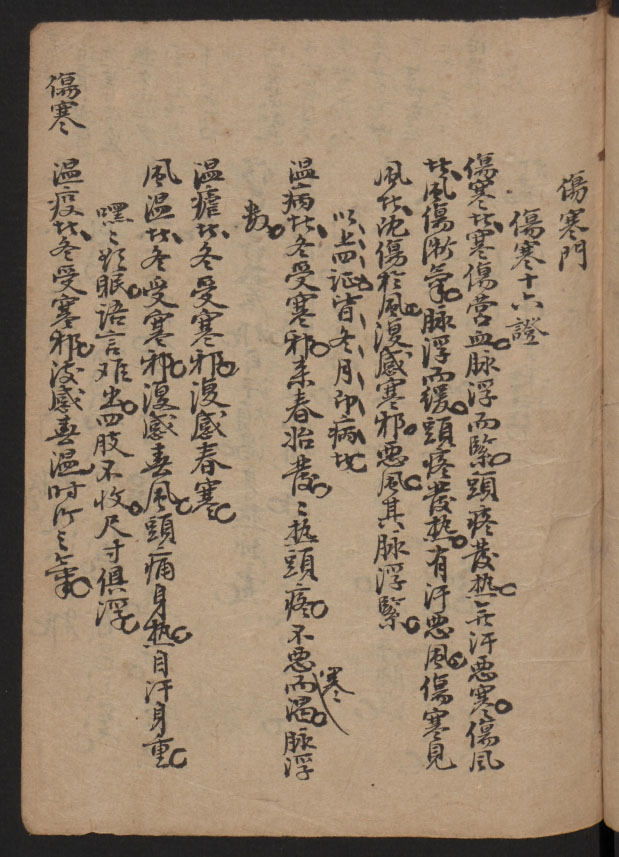 傷寒門
傷寒十六證
傷寒者寒傷营血脉浮而緊頭疼發热无汗悪寒傷风
者风傷衛氣脉浮而缓頭疼發热有汗悪风傷寒見
风者沈傷於风復感寒邪悪风其脉浮緊
以上四证皆冬月即病者
温病者冬受寒邪来春始發〻热頭疼不悪寒而渴脉浮
数
温瘧者冬受寒邪復感春寒
风温者冬受寒邪復感春风頭痛身热自汗身重
嘿〻欲眠语言难出四肢不收尺寸俱浮
温疫者冬受寒邪復感春温時行之氣
傷寒